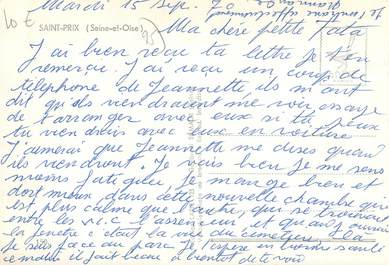 10 €
Mardi 15 Sep. 70
SAINT-PRIX (Seine-et-Oise)
95
Ma chère petite Tata
J'ai bien reçu ta lettre je t'en
remercie. J'ai reçu un coup de
téléphone de Jeannette, ils m'ont
dit qu'ils viendraient me voir
de t'arranger avec eux si tu peux
tu viendrais avec eux en voiture
J'aimerai que Jeannette me dises quand
ils viendront. Je vais bien je me sens
moins fatiguée, je mange bien et
dort mieux dans cette nouvelle chambre qui
est plus calme que l'autre, qui se trouvait
entre les w.c. l'ascenseur et quand j'ouvrais
la fenêtre c'était la vue du cimetière, là
je suis face au parc. Je t'espère en bonne santé
ce matin il fait beau à bientôt de te voir
Je t'embrasse affectueusement